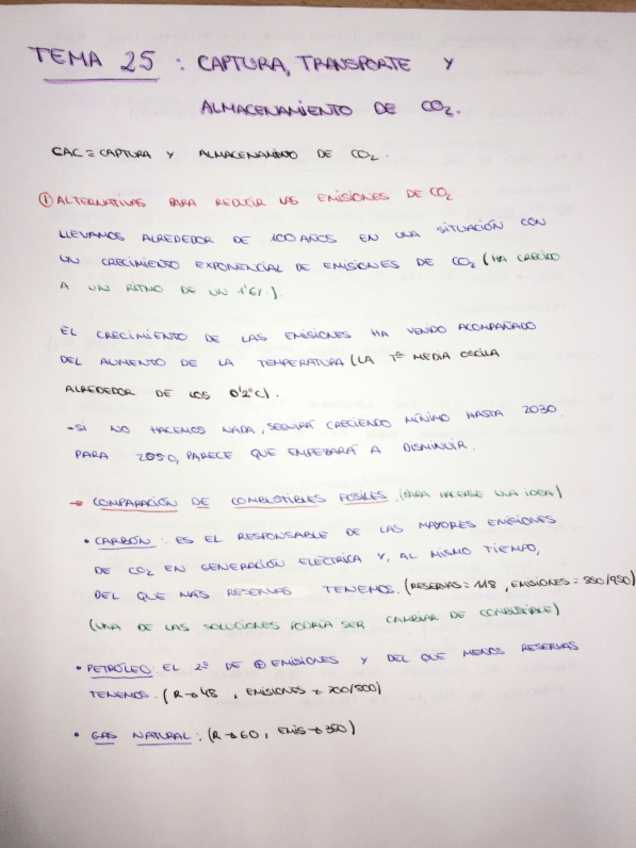 TEMA 25 : CAPTURA, TRANSPORTE Y
ALMACENAMIENTO DE CO₂.
CAC ≡ CAPTURA Y ALMACENAMIENTO DE CO₂.
① ALTERNATIVAS PARA REDUCIR LAS EMISIONES DE CO₂
LLEVAMOS ALREDEDOR DE 100 AÑOS EN UNA SITUACIÓN CON
UN CRECIMIENTO EXPONENCIAL DE EMISIONES DE CO₂ (HA CRECIDO
A UN RITMO DE UN 1'6%.).
EL CRECIMIENTO DE LAS EMISIONES HA VENIDO ACOMPAÑADO
DEL AUMENTO DE LA TEMPERATURA (LA Tª MEDIA OSCILA
ALREDEDOR DE LOS 0'2°C).
-SI NO HACEMOS NADA, SEGUIRÁ CRECIENDO MÍNIMO HASTA 2030.
PARA 2050, PARECE QUE EMPEZARÁ A DISMINUIR.
→ COMPARACIÓN DE COMBUSTIBLES FÓSILES. (PARA HACERSE UNA IDEA)
• CARBÓN : ES EL RESPONSABLE DE LAS MAYORES EMISIONES
DE CO₂ EN GENERACIÓN ELÉCTRICA Y, AL MISMO TIEMPO,
DEL QUE MÁS RESERVAS TENEMOS. (RESERVAS = 118, EMISIONES = 850/950)
(UNA DE LAS SOLUCIONES PODRÍA SER CAMBIAR DE COMBUSTIBLE)
• PETRÓLEO: EL 2º DE ⊕ EMISIONES Y DEL QUE MENOS RESERVAS
TENEMOS. (R → 48, EMISIONES = 700/800)
• GAS NATURAL : (R → 60, EMIS → 350)